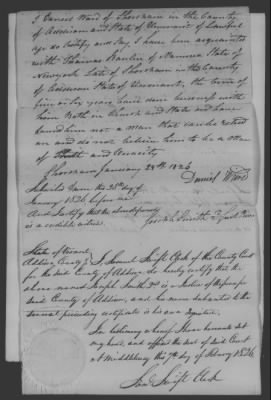 I Daniel Ward of Shoreham in the County
of Addison and State of Vermont of lawful
age do testify and say I have been acquainted
with Thomas Barlin of Moriah State of
Newyork late of Shoreham in the County
of Addison State of Vermont, the term of
five or six years have done business with
him both in Church and State and have
found him not a man that could be relied
on and do not believe him to be a man
of Truth and Veracity
Shoreham January 28th 1826
Daniel Ward
Subscribed & sworn the 28th day of
January 1826 before me
And I certify that the
is a credible witness
Joseph Smith 2d Just Peace
State of Vermont
Addison County I Samuel Swift Clerk of the County Court
for the said County of Addison, do hereby certify that the
above named Joseph Smith 2d is a Justice of the peace for
said County of Addison, and his name subscribed to the
annexed preceding certificate is his own signature.
In testimony whereof I have hereunto set
my hand and affixed the seal of said Court
at Middlebury this 7th day of February 1826.
Saml Swift Clerk